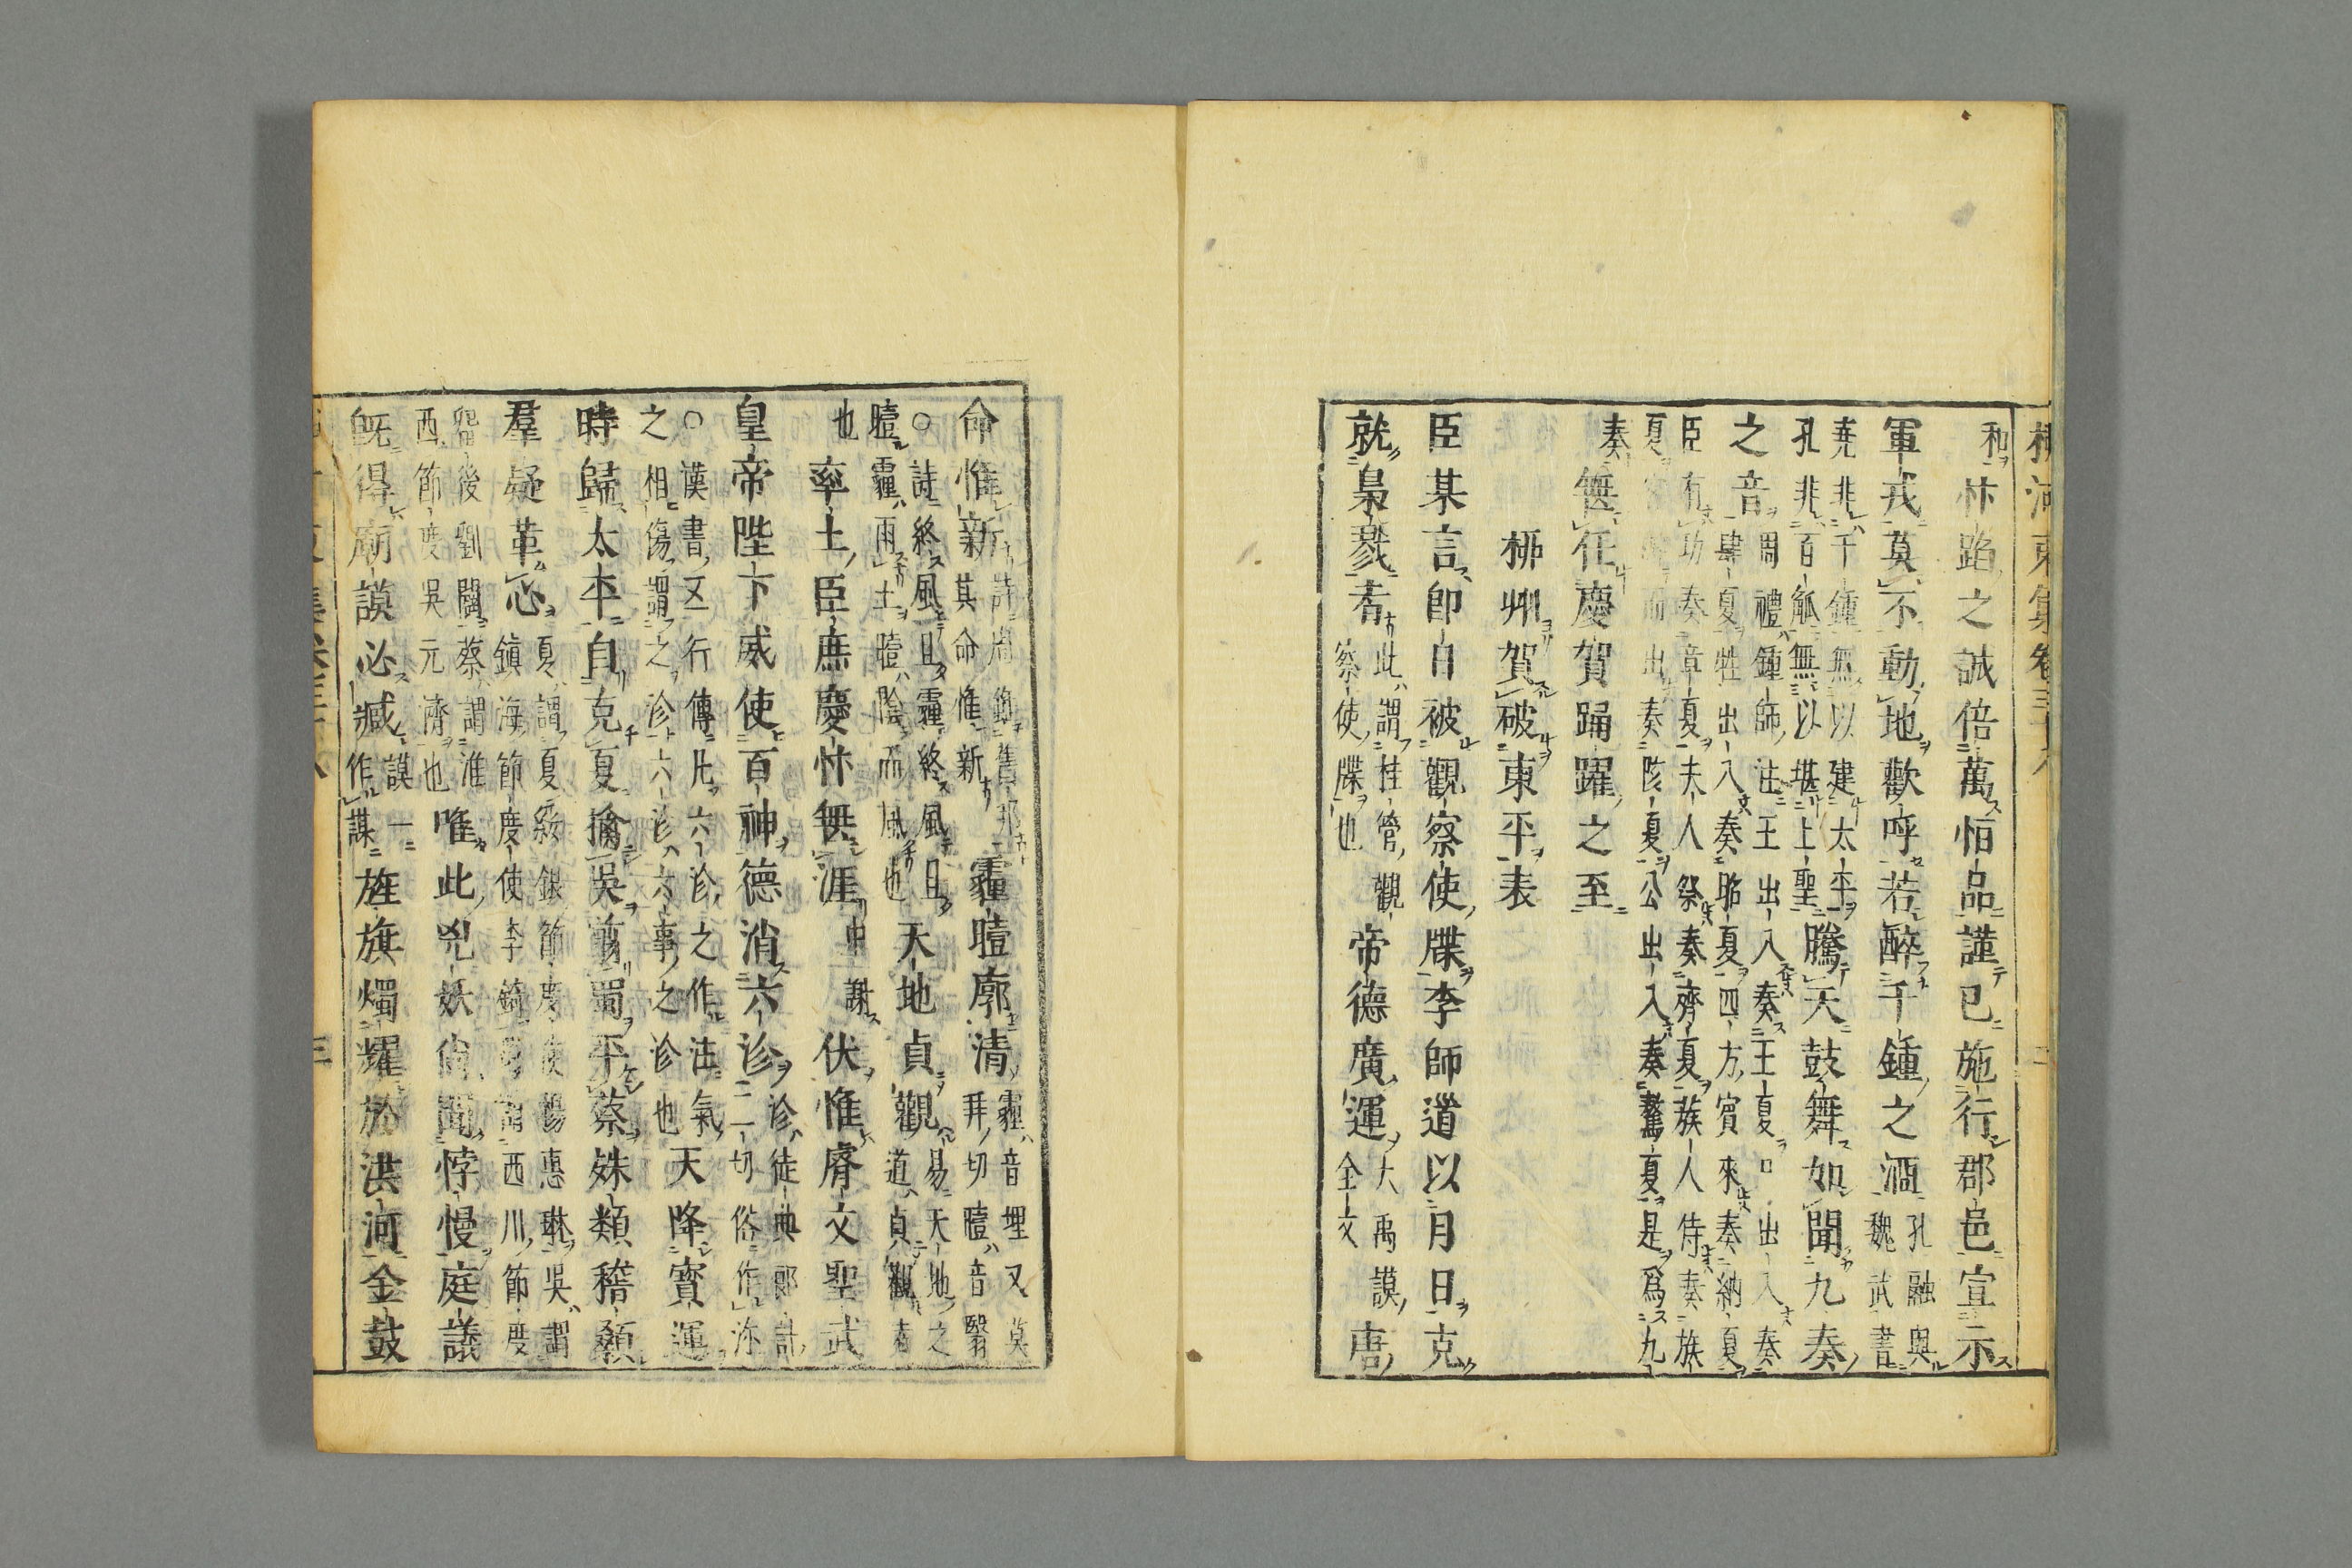 柳河東集卷三十八
和 忭蹈之誠倍萬恒品謹已施行郡邑宣示
軍戎莫不動地歡呼若醉千鍾之酒 孔融與魏武書
堯非千鍾無以建太平孔非百觚無以堪上聖 騰天鼓舞如聞九奏
之音 周禮鍾師注王出入奏王夏口出入奏肆夏牲出入奏昭夏四方賓來奏納夏
臣有功奏章夏夫人祭奏齊夏族人侍奏族夏 出奏陔夏公出入奏驁夏是爲九
奏 無任慶賀踊躍之至
柳州賀破東平表
臣某言即日被觀察使牒李師道以月日克
就梟戮者 此謂桂管觀察使牒也 帝德廣運 大禹謨全文 唐
命惟新 詩周雖舊邦其命惟新 霾曀廓清 霾音埋又莫拜切曀音翳
○詩終風且霾終風且曀霾雨土曀陰而風也 天地貞觀 易天地之道貞觀者
也 率土臣庶慶忭無涯 中謝 伏惟睿文聖武
皇帝陛下威使百神德消六沴 沴徒典郎計二切俗作沵
○漢書五行傳凡六沴之作注氣之相傷謂之沴六沴六事之沴也 天降寶運
時歸太平自克夏擒吳翦蜀平蔡殊類稽顙
羣疑革心 夏謂夏綏銀節度使楊惠琳吳謂鎮海節度使李錡蜀謂西川節度
留後劉闢蔡謂淮西節度吳元濟也 唯此兇妖尙聞悖慢庭議
旣得廟謨必臧 謨一作謀 旌旗燭耀於洪河金鼓
三